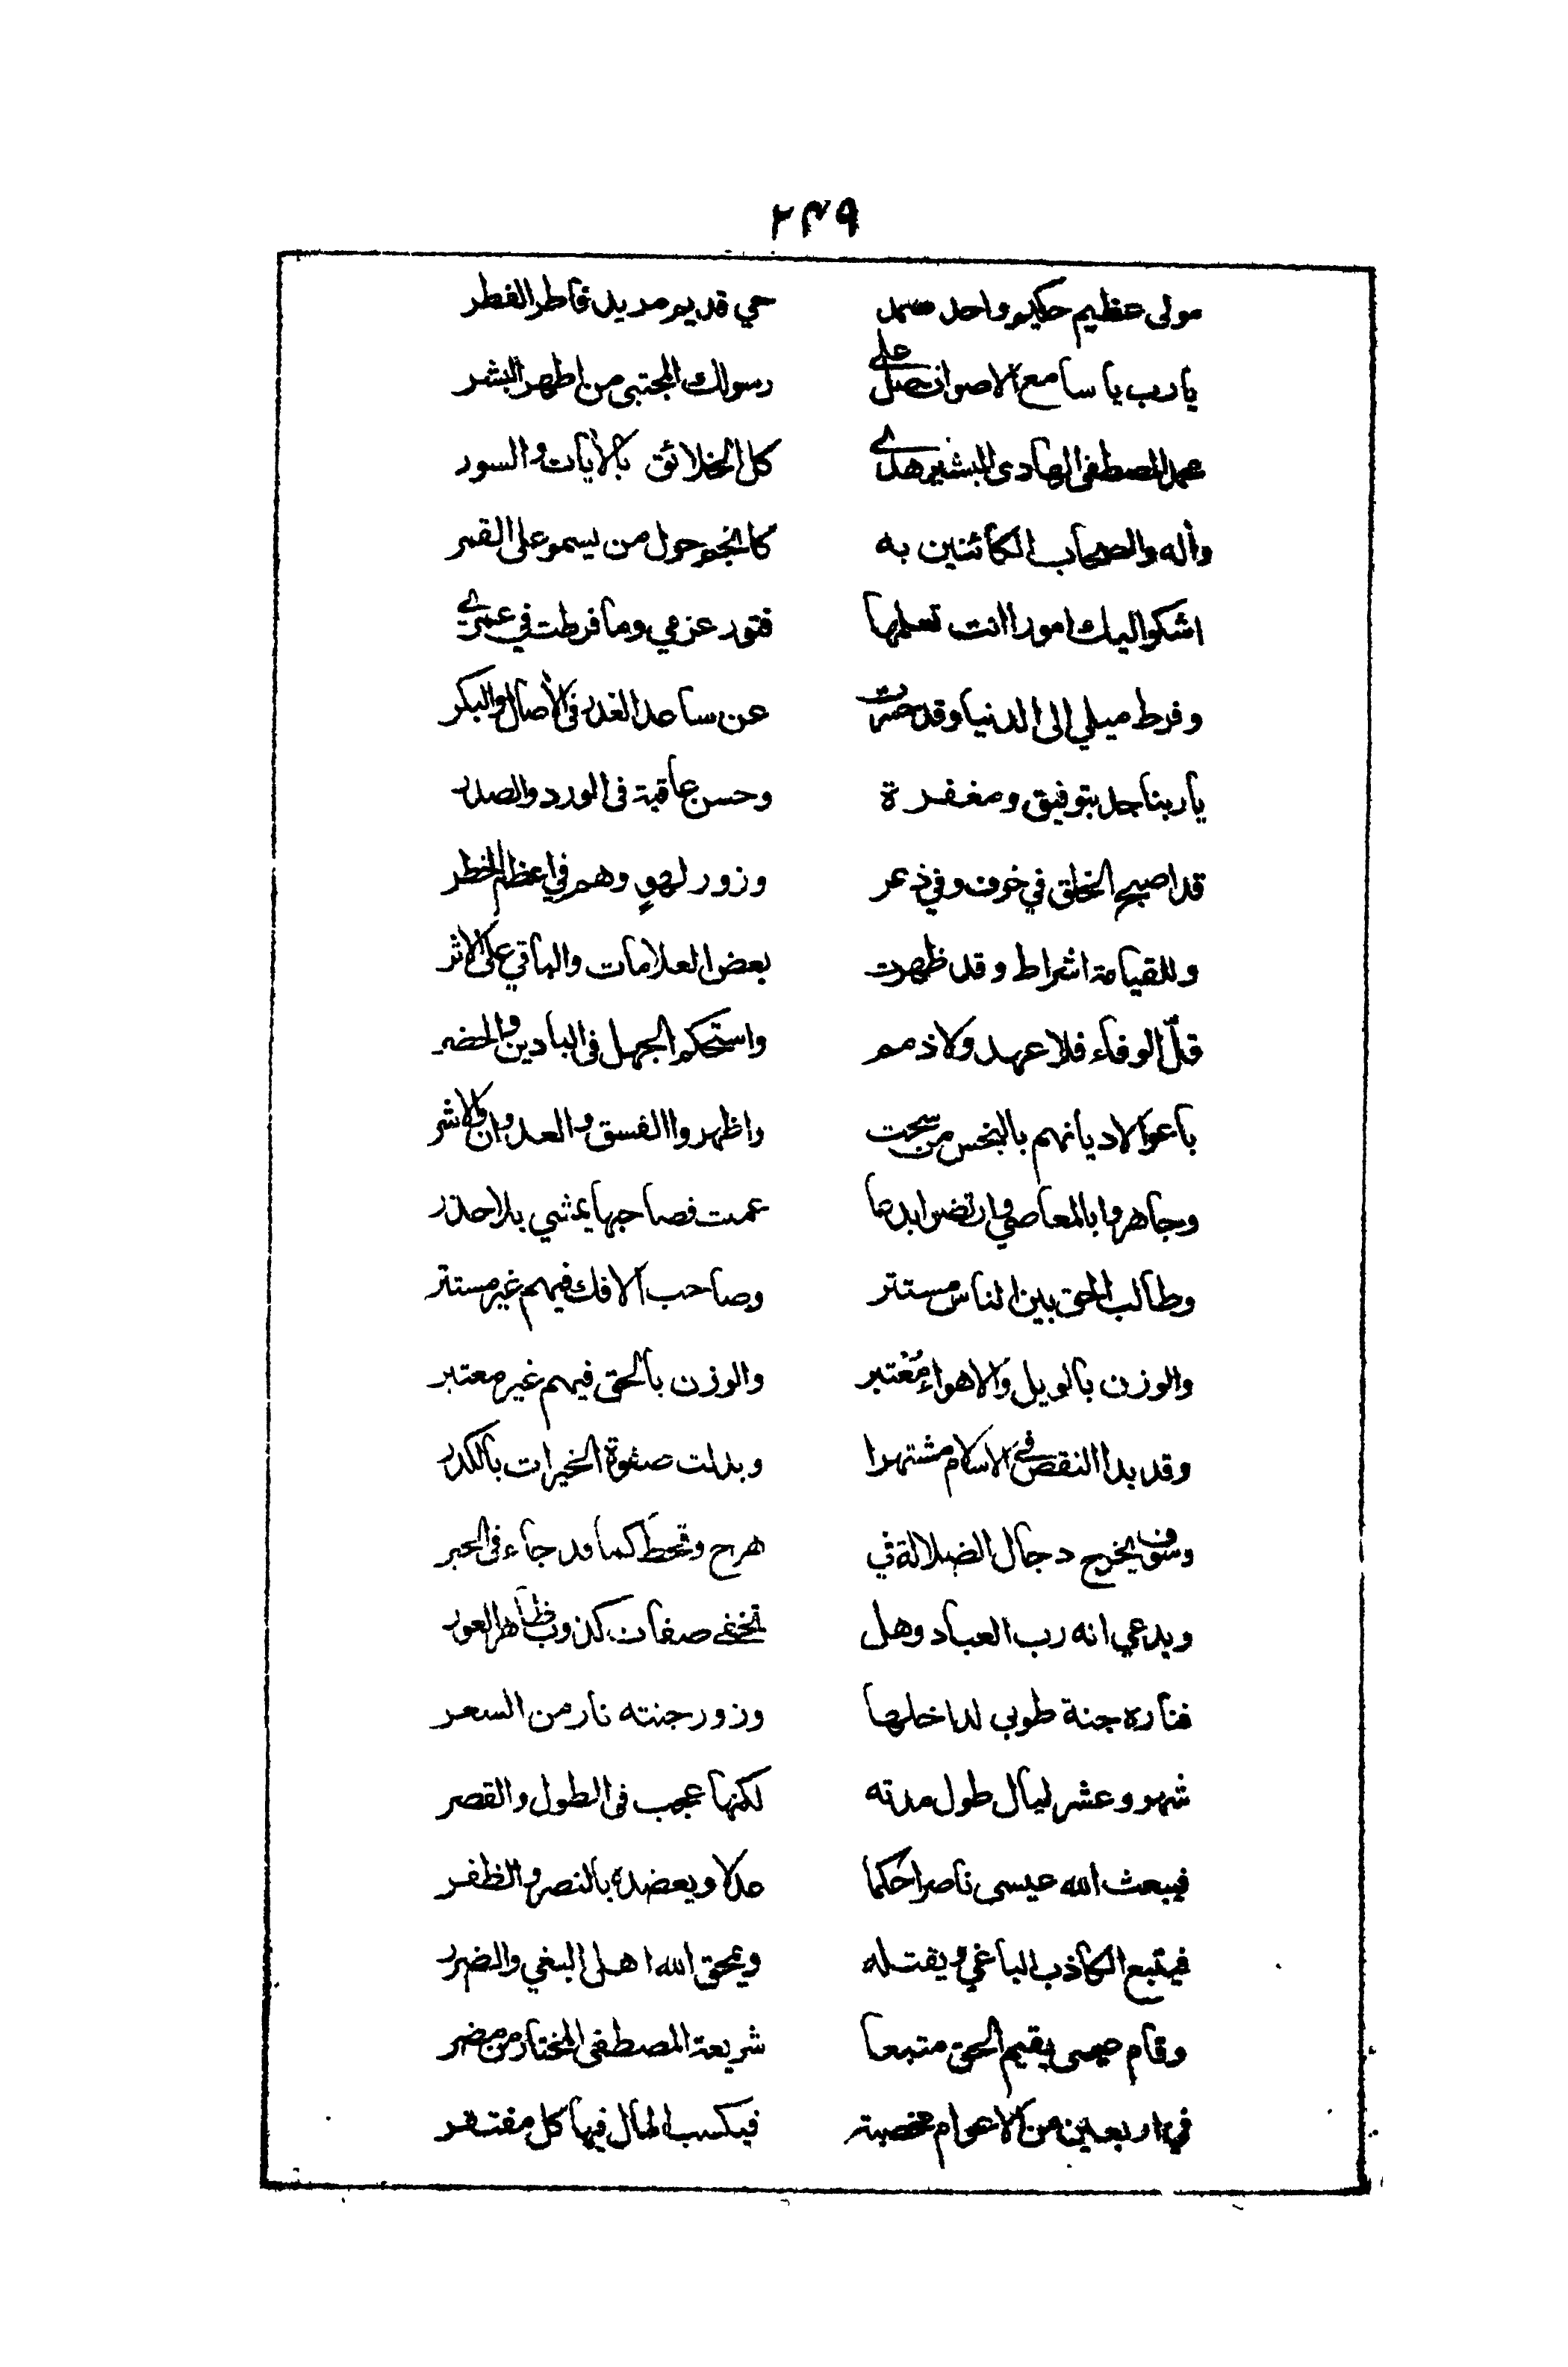 ٢٣٩
مولى عظيم حكيم واحد صمد حي قديم مريد فاطر الفطر
يا رب يا سامع الاصوات صل على رسولك المجتبى من اطهر البشر
محمد المصطفى الهادي البشير هدى كل الخلائق بالأيات والسور
وأله والصحاب الكائنين به كانجم حول من يسمو على القمر
اشكو اليك امورا انت تعلمها فتور عزمي وما فرطت في عمري
وفرط ميلي الى الدنيا وقد حسرت عن ساعد الغدر في الأصال والبكر
يا ربنا جد بتوفيق ومغفرة وحسن عاقبة في الورد والصدر
قد اصبح الخلق في خوف وفي ذعر وزور لهوٍ وهم في اعظم الخطر
وللقيامة اشراط وقد ظهرت بعض العلامات والباقي على الاثر
قلّ الوفاء فلا عهد ولا ذمم واستحكم الجهل في البادين والحضر
باعوا لاديانهم بالبخس من سحت واظهروا الفسق والعدوان والاشر
وجاهروا بالمعاصي وارتضوا بدعا عمت فصاحبها يمشي بلا حذر
وطالب الحق بين الناس مستتر وصاحب الافك فيهم غير مستتر
والوزن بالويل والاهواء مُعْتبر والوزن بالحق فيهم غير معتبر
وقد بدا النقص في الاسلام مشتهرا وبدلت صفوة الخيرات بالكدر
وسوف يخرج دجال الضلالة في هرج وقحط كما قد جاء في الخبر
ويدعي انه رب العباد وهل تخفى صفات كذوب ظاهر العور
فناره جنة طوبى لداخلها وزور جنته نار من السعر
شهر وعشر ليال طول مدته لكنها عجب في الطول والقصر
فيبعث الله عيسى ناصرا حكما عدلا ويعضده بالنصر والظفر
فيتبع الكاذب الباغي ويقتله ويمحق الله اهل البغي والضرر
وقام عيسى يقيم الحق متبعا شريعة المصطفى المختار من مضر
في اربعين من الاعوام مخصبة فيكسب المال فيها كل مفتقر